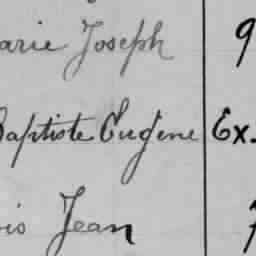 arie Joseph 9
Baptiste Eugène Ex.
is Jean